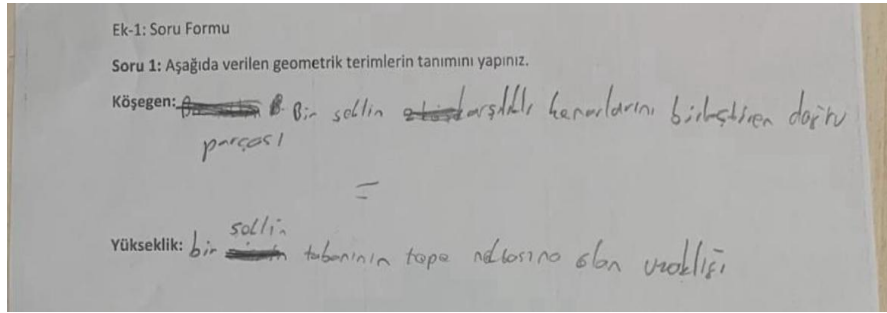 Ek-1: Soru Formu
Soru 1: Aşağıda verilen geometrik terimlerin tanımını yapınız.
Köşegen: B. Bir şeklin karşılıklı kenarlarını birleştiren doğru
parçası
=
şeklin
Yükseklik: bir tabanının tepe noktasına olan uzaklığı